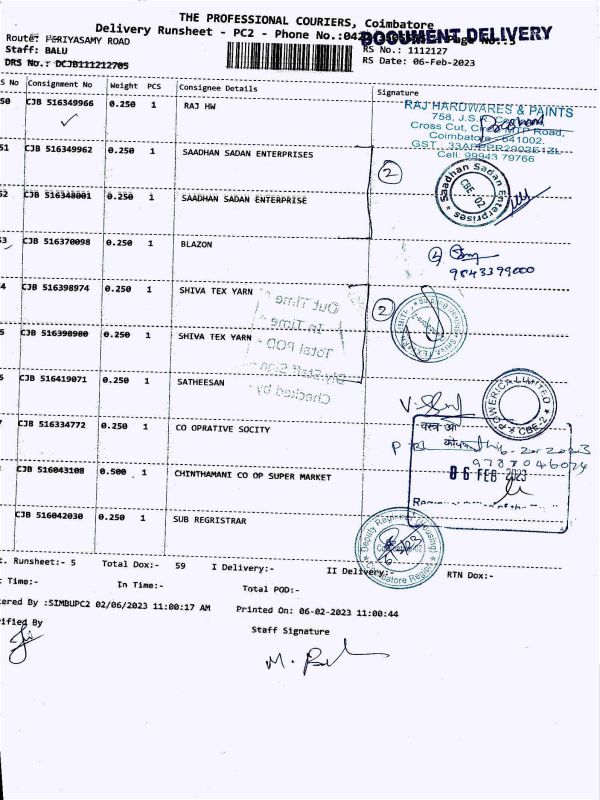 THE PROFESSIONAL COURIERS, Coimbatore
Delivery Runsheet - PC2 - Phone No.:042
DOCUMENT DELIVERY
Route: PERIYASAMY ROAD
RS No.: 1112127
Staff: BALU
RS Date: 06-Feb-2023
DRS No.: DCJB111212705
S No Consignment No Weight PCS Consignee Details Signature
50 CJB 516349966 0.250 1 RAJ HW
RAJ HARDWARES & PAINTS
Cross Cut,
Road,
Coimbatore - 641002.
Cell: 99943 79766
51 CJB 516349962 0.250 1 SAADHAN SADAN ENTERPRISES
2
Saadhan Sadan Enterprises
CBE - 02
52 CJB 516348001 0.250 1 SAADHAN SADAN ENTERPRISE
3 CJB 516370098 0.250 1 BLAZON
9843399000
4 CJB 516398974 0.250 1 SHIVA TEX YARN
2
Out Time
In Time -
Total POD -
Checked by
5 CJB 516398980 0.250 1 SHIVA TEX YARN
5 CJB 516419071 0.250 1 SATHEESAN
POWERICA LIMITED
CBE-2
7 CJB 516334772 0.250 1 CO OPRATIVE SOCITY
06 FEB 2023
CJB 516043108 0.500 1 CHINTHAMANI CO OP SUPER MARKET
CJB 516042030 0.250 1 SUB REGRISTRAR
Deputy Registrar (Housing)
Coimbatore Region
t. Runsheet:- 5 Total Dox:- 59 I Delivery:- II Delivery:- RTN Dox:-
t Time:- In Time:- Total POD:-
tered By :SIMBUPC2 02/06/2023 11:00:17 AM Printed On: 06-02-2023 11:00:44
rified By Staff Signature